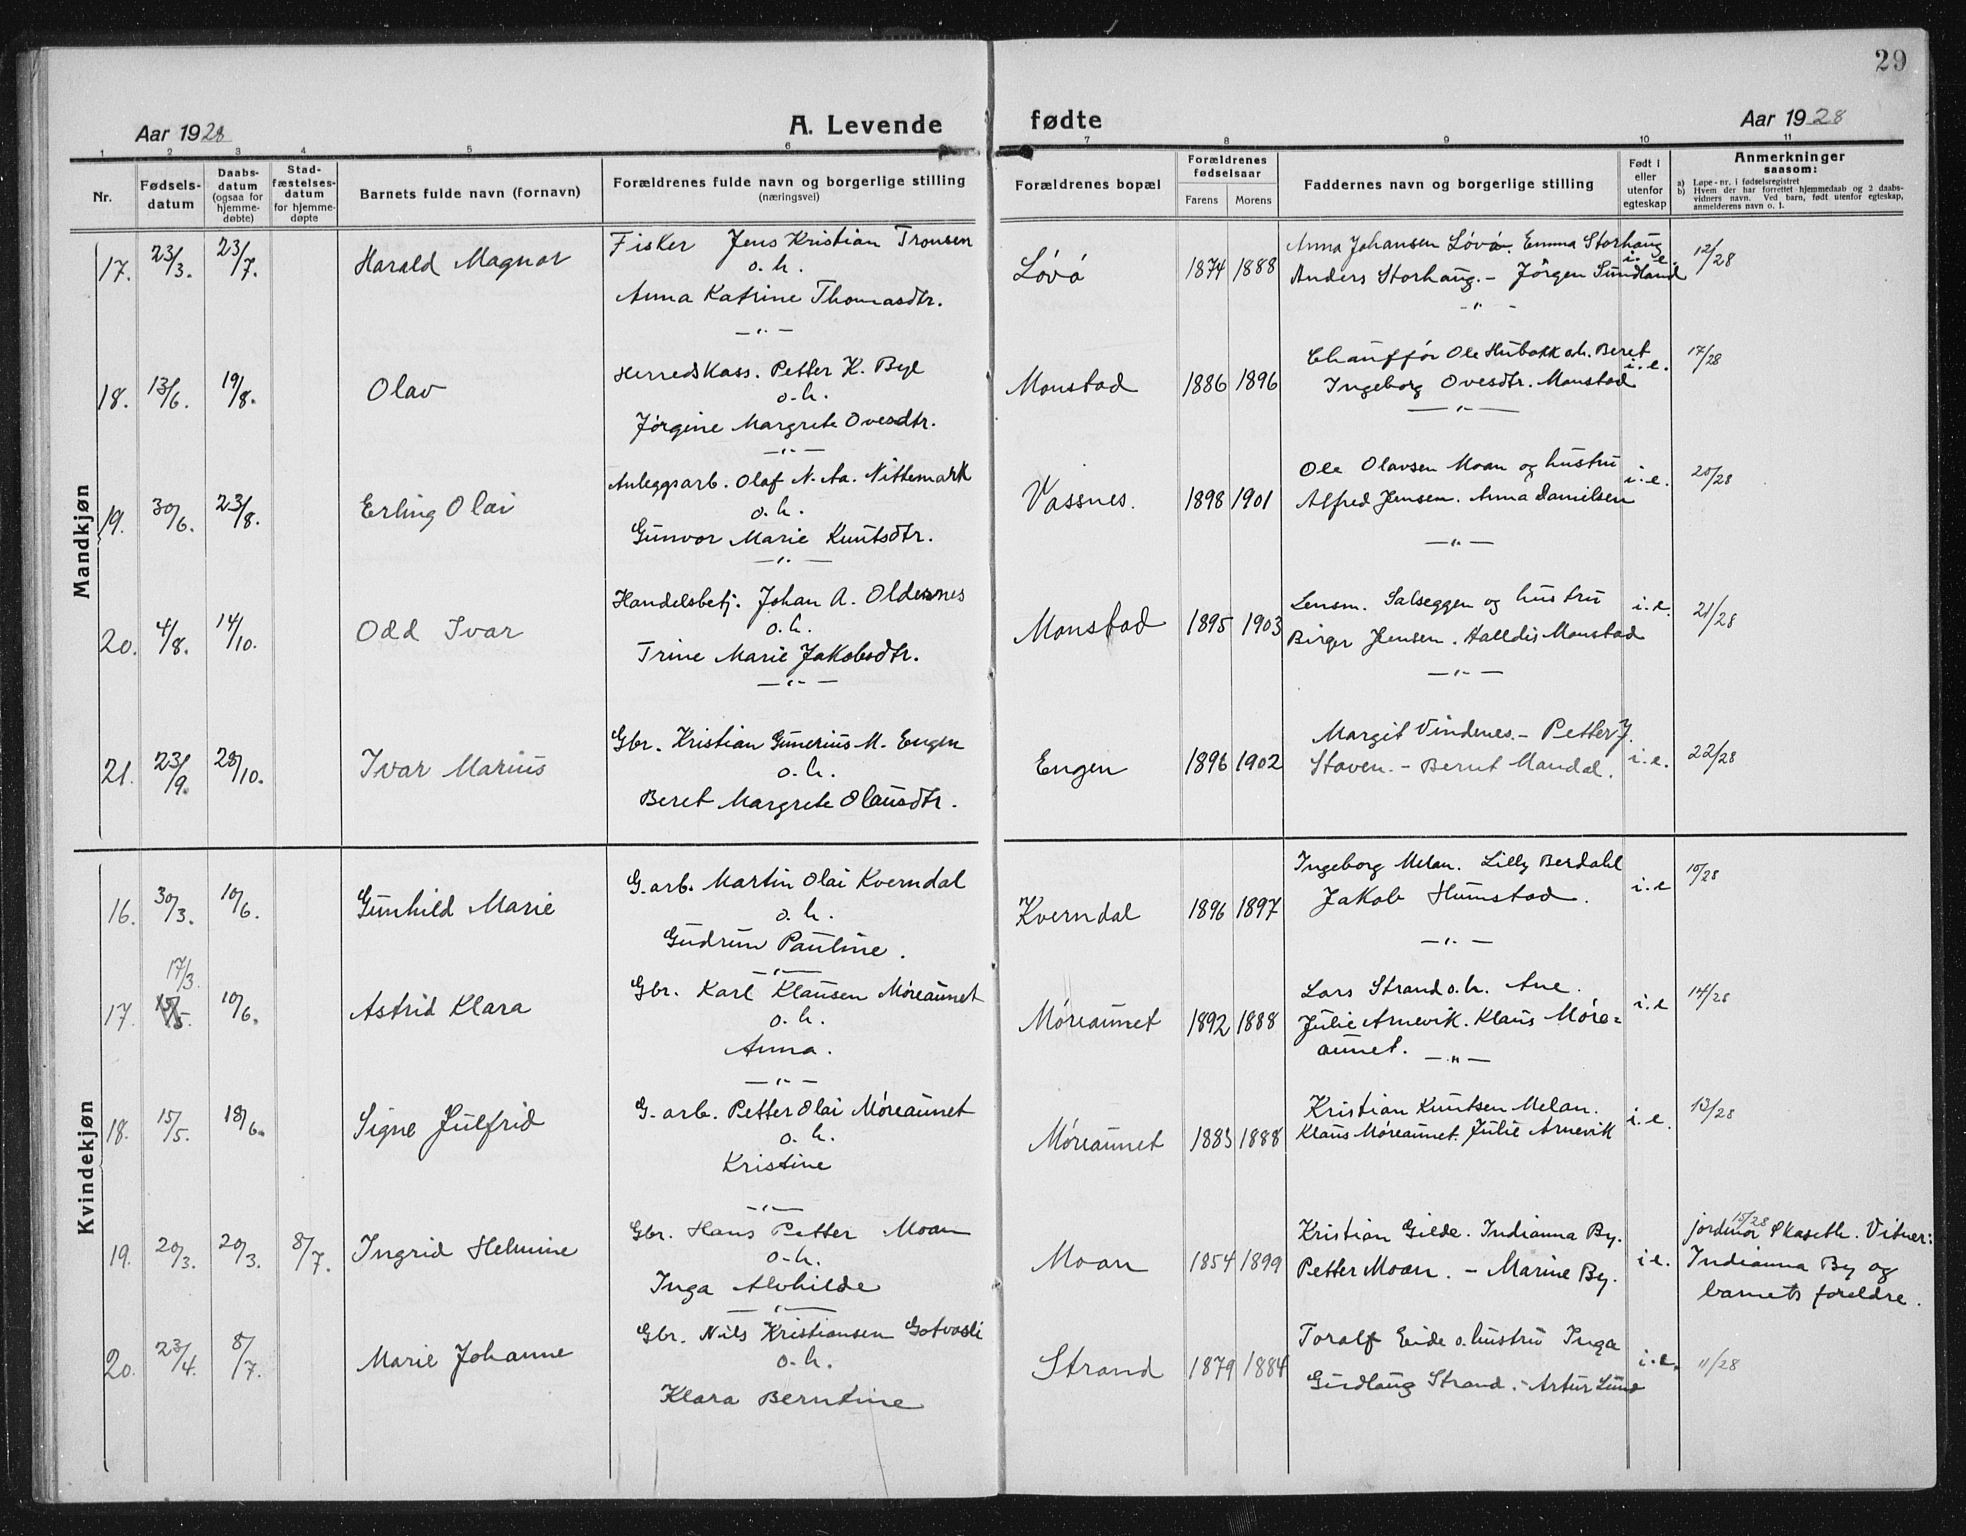 29
Aar 1928 A. Levende fødte Aar 1928
1 2 3 4 5 6 7 8 9 10 11
Nr. Fødsels-datum Daabs-datum (ogsaa for hjemme-døbte) Stad-fæstelses-datum for hjemme-døpte Barnets fulde navn (fornavn) Forældrenes fulde navn og borgerlige stilling (næringsvei) Forældrenes bopæl Forældrenes fødselsaar Farens Morens Faddernes navn og borgerlige stilling Født i eller utenfor egteskap Anmerkninger saasom:
a) Løpe-nr. i fødselsregistret
b) Hvem der har forrettet hjemmedaab og 2 daabs-vidners navn. Ved barn, født utenfor egteskap, anmelderens navn o. l.
Mandkjøn
17. 23/3. 23/7. Harald Magnar
Fisker Jens Kristian Tronsen
o.h.
Anna Katrine Thomasdtr.
Løvø 1874 1888
Anna Johansen Løvø. Emma Storhaug
Anders Storhaug. – Jørgen Sundland
i. e. 12/28
18. 13/6. 19/8. Olav
Herredskass. Petter K. Bye
o.h.
Jørgine Margrete Ovesdtr.
Monstad 1886 1896
Chauffør Ole Hubakk o.h. Beret
Ingeborg Ovesdtr. Monstad
i.e. 17/28
19. 30/6. 23/8. Erling Olai
Anleggsarb. Olaf N. Aa. Nittemark
o.h.
Gunvor Marie Knutsdtr.
Vassnes. 1898 1901
Ole Olavsen Moan og hustru
Alfred Jensen. Anna Danielsen
i.e. 20/28
20. 4/8. 14/10. Odd Ivar
Handelsbetj. Johan A. Oldernes
o.h.
Trine Marie Jakobsdtr.
Monstad 1895 1903
Lensm. Salseggen og hustru
Birger Jensen. Halldis Monstad
i.e. 21/28
21. 23/9. 28/10. Ivar Marius
Gbr. Kristian Gunerius M. Engen
o.h.
Beret Margrete Olausdtr.
Engen 1896 1902
Margit Vindenes. – Petter J.
Staven. – Bernt Mandal.
i.e. 22/28
Kvindekjøn
16. 30/3. 10/6. Gunhild Marie
G.arb. Martin Olai Kverndal
o.h.
Gudrun Pauline.
Kverndal 1896 1897
Ingeborg Melan. Lilly Berdahl
Jakob Humstad.
i.e 10/28
17/3.
17. 10/6. Astrid Klara
Gbr. Karl Klausen Møreaunet
o.h.
Anna.
Møreaunet 1892 1888
Lars Strand o.h. Ane.
Julie Arnevik. Klaus Møre=
aunet.
i.e 14/28
18. 15/5. 18/6. Signe Julfrid
G.arb. Petter Olai Møreaunet
o.h.
Kristine
Møreaunet 1883 1888
Kristian Knutsen Melan.
Klaus Møreaunet. Julie Arnevik
i.e. 13/28
19. 20/3. 20/3. 8/7. Ingrid Helmine
Gbr. Hans Petter Moan
o.h.
Inga Alvhilde
Moan 1854 1899
Kristian Gilde. Indianna By.
Petter Moan. – Marine By.
i e. 15/28
jordmor Skaseth. Vitner:
Indianna By og
barnets foreldre.
20. 23/4. 8/7. Marie Johanne
Gbr. Nils Kristiansen Gotvasli
o.h.
Klara Berntine
Strand 1879 1884
Toralf Eide o. hustru Inga
Gudlaug Strand. – Artur Lund
i.e. 11/28